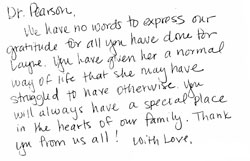 Dr. Pearson,
We have no words to express our
gratitude for all you have done for
Layne. You have given her a normal
way of life that she may have
struggled to have otherwise. You
will always have a special place
in the hearts of our family. Thank
you from us all! With Love,